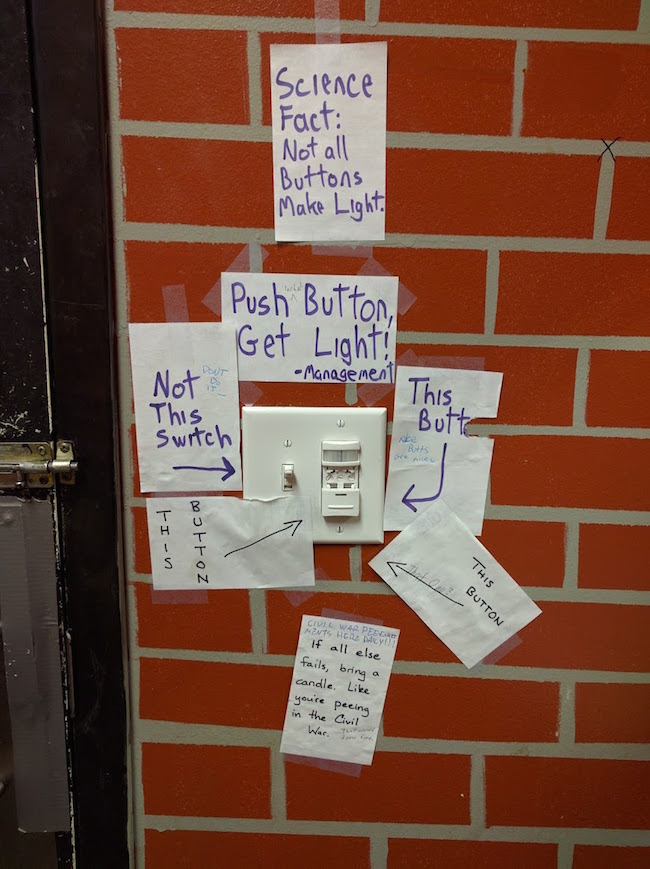 Science
Fact:
Not all
Buttons
Make Light.
Push Button,
Get Light!
-Management
Not
This
Switch
DON'T
DO
IT
This
Butt
Nice
Butts
are nice
THIS
BUTTON
THIS
BUTTON
CIVIL WAR
HERE DAILY!!!
If all else
fails, bring a
candle. Like
you're peeing
in the Civil
War.